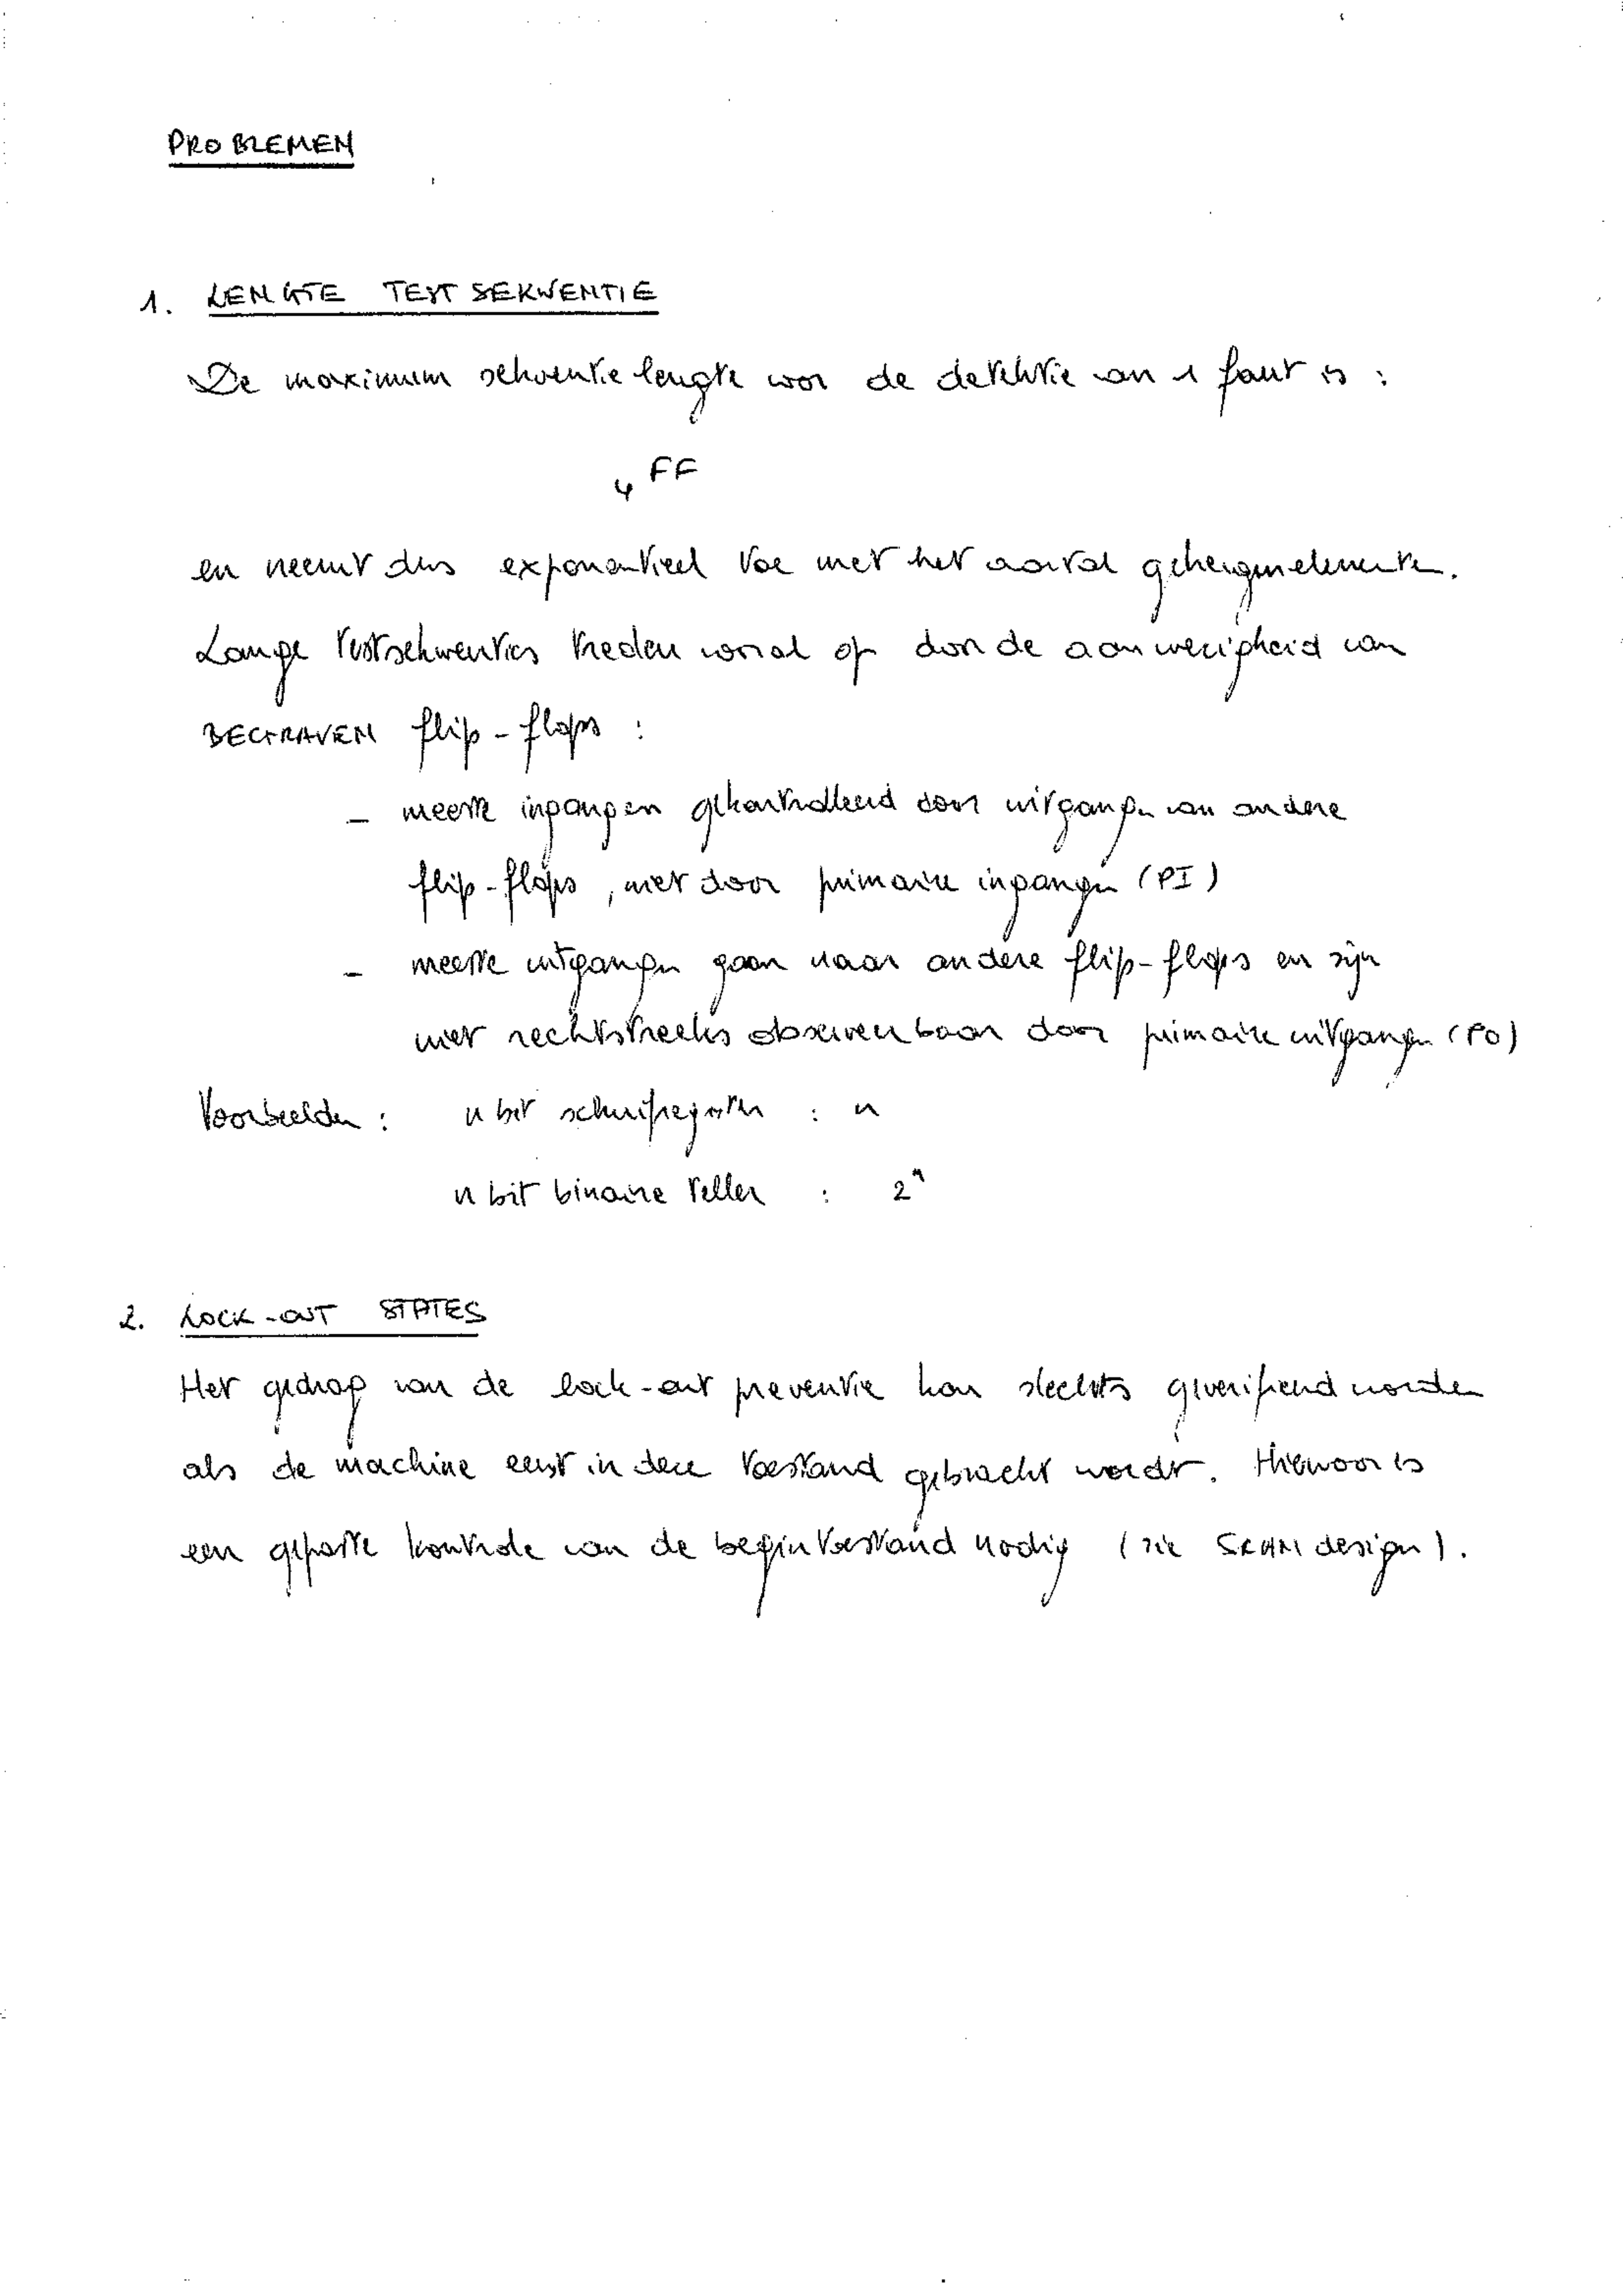 PROBLEMEN
1. LENGTE TESTSEKWENTIE
De maximum sekwentie lengte voor de detektie van 1 fout is :
4^FF
en neemt dus exponentieel toe met het aantal geheugenelementen.
Lange testsekwenties treden vooral op door de aanwezigheid van
BEGRAVEN flip-flops :
- meeste ingangen gekontroleerd door uitgangen van andere
flip-flops, niet door primaire ingangen (PI)
- meeste uitgangen gaan naar andere flip-flops en zijn
niet rechtstreeks observeerbaar door primaire uitgangen (PO)
Voorbeelden : n bit schuifregister : n
n bit binaire teller : 2^n
2. LOCK-OUT STATES
Het gedrag van de lock-out preventie kan slechts geverifieerd worden
als de machine eerst in deze toestand gebracht wordt. Hiervoor is
een gepaste kontrole van de begintoestand nodig (zie SCAN design).